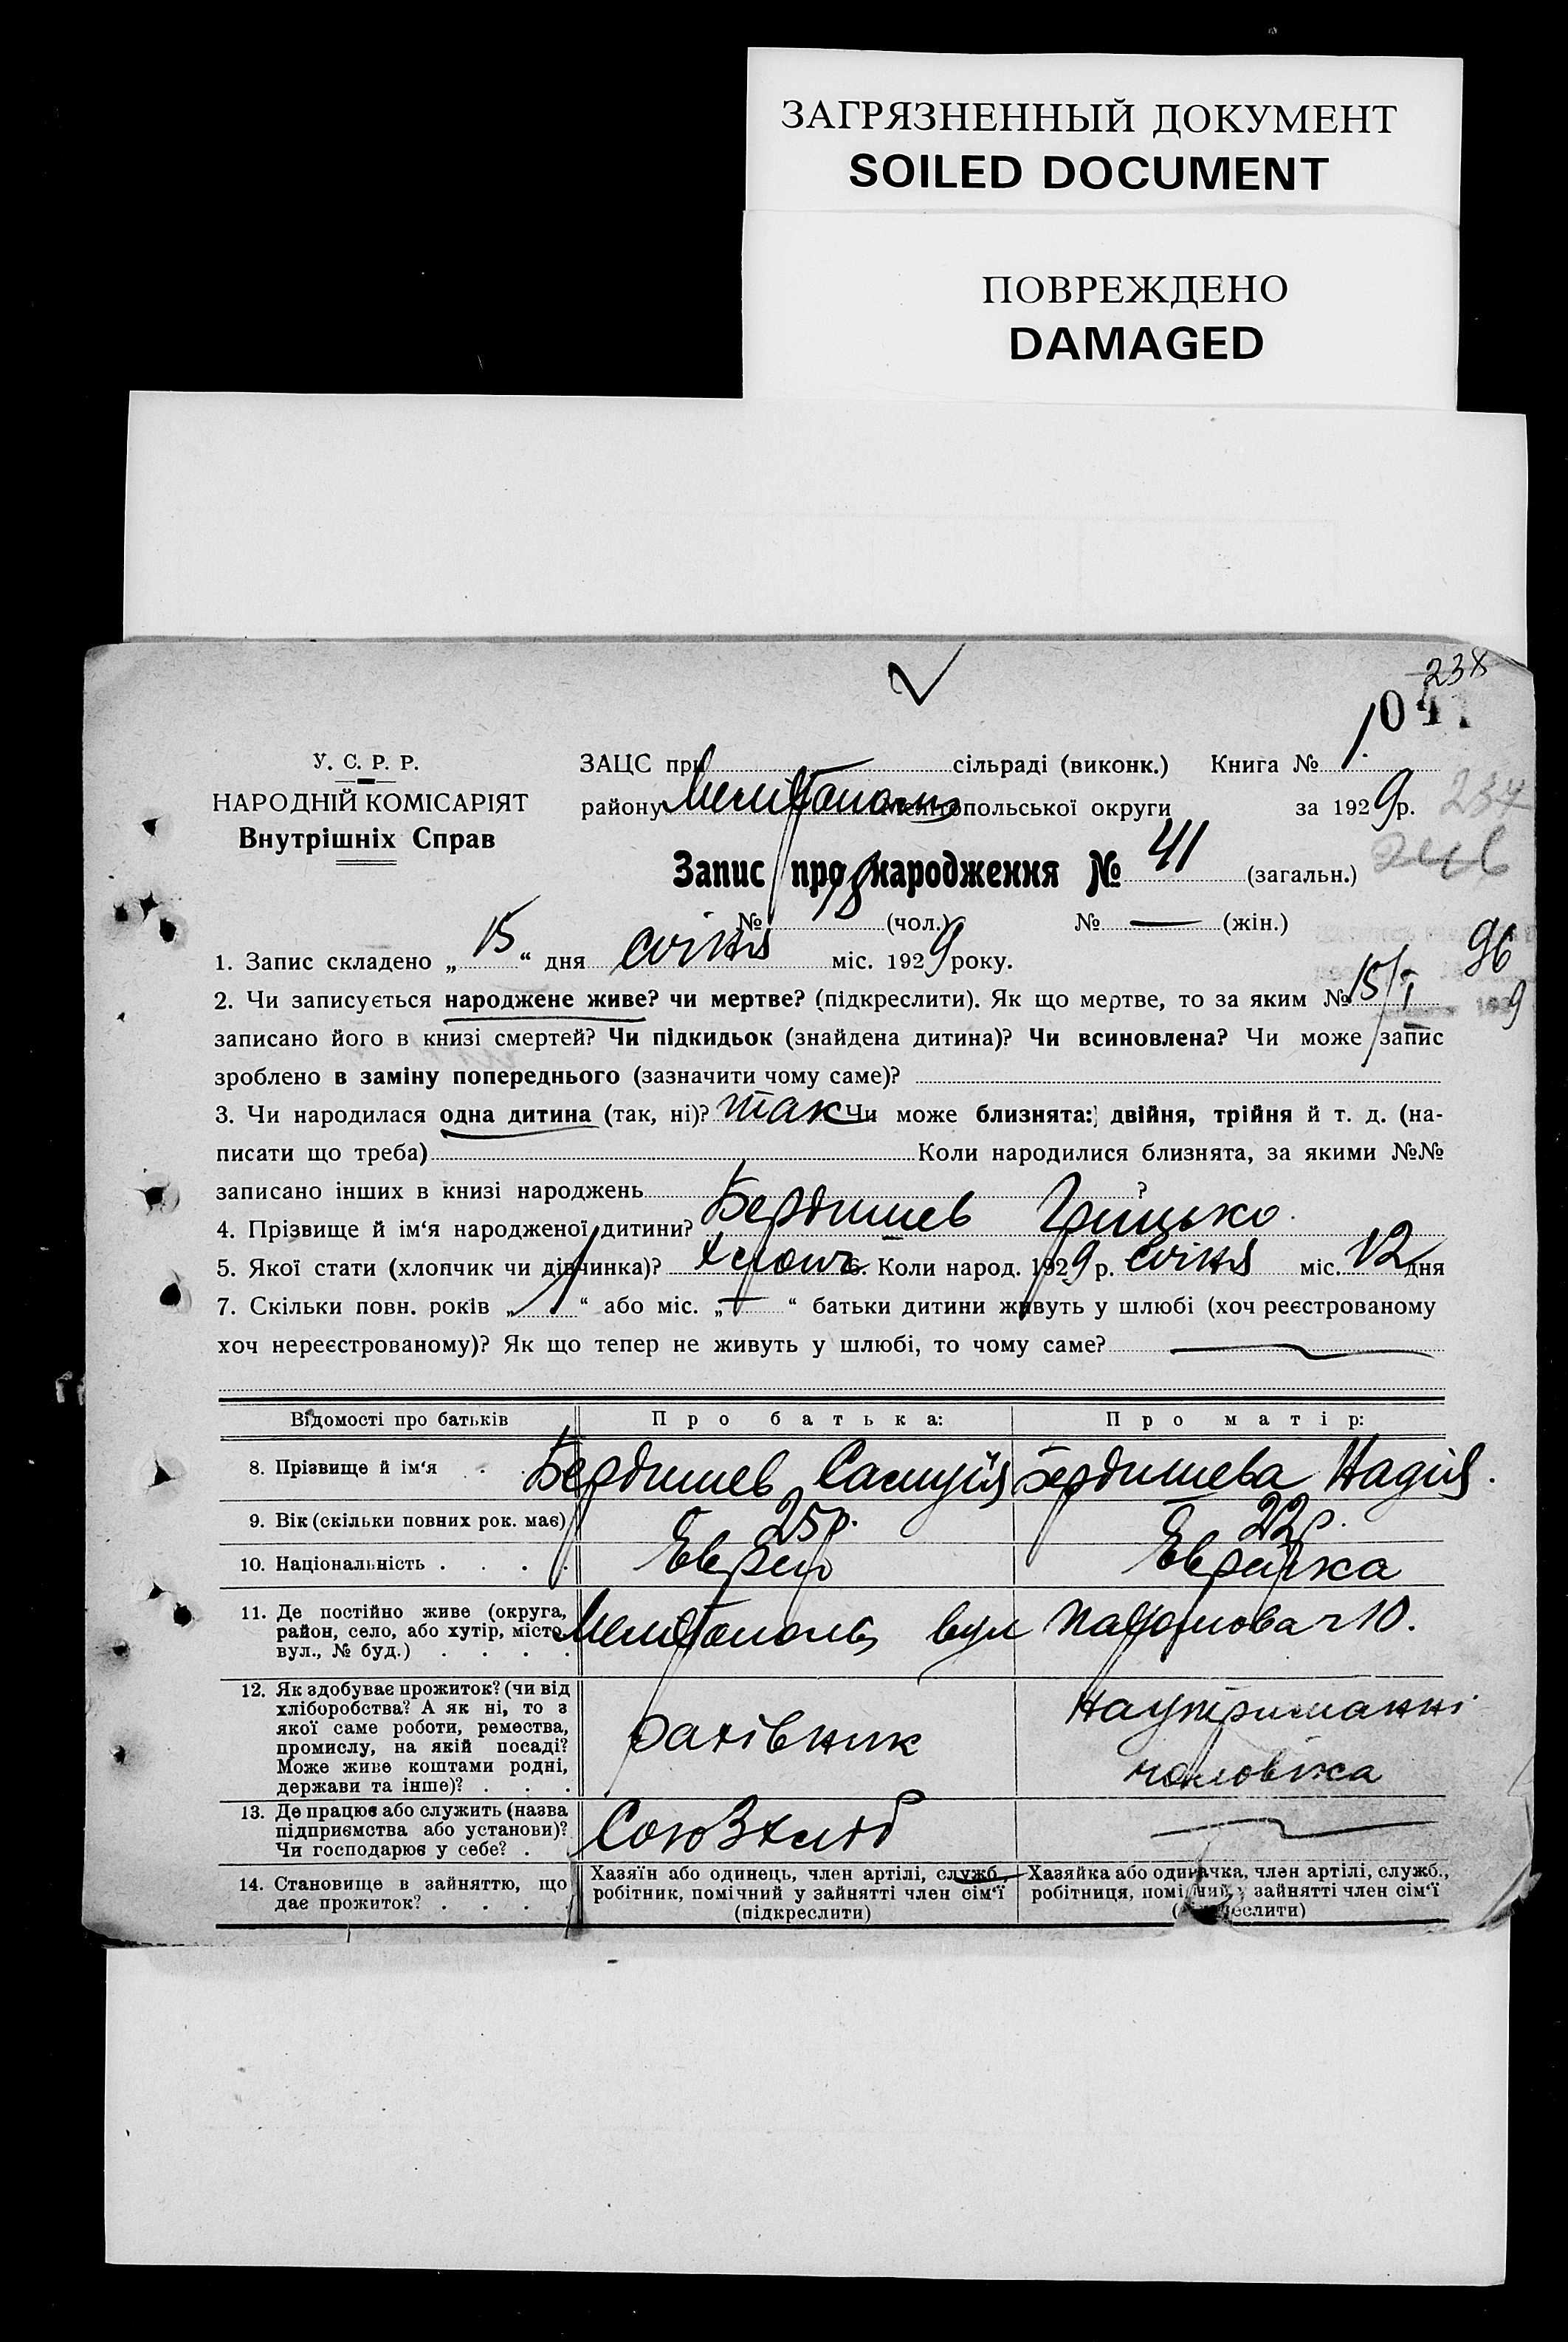 ЗАГРЯЗНЕННЫЙ ДОКУМЕНТ
SOILED DOCUMENT
ПОВРЕЖДЕНО
DAMAGED
238
104
У. С. Р. Р.
НАРОДНІЙ КОМІСАРІЯТ
Внутрішніх Справ
ЗАЦС при сільраді (виконк.) Книга № 1
району Мелітополь Мелітопольської округи за 1929 р.
234
Запис про народження № 41 (загальн.)
№ 18 (чол.) № — (жін.)
96
1. Запис складено „15“ дня січня міс. 1929 року.
2. Чи записується народжене живе? чи мертве? (підкреслити). Як що мертве, то за яким № 15/I 9
записано його в книзі смертей? Чи підкидьок (знайдена дитина)? Чи всиновлена? Чи може запис
зроблено в заміну попереднього (зазначити чому саме)?
3. Чи народилася одна дитина (так, ні)? так Чи може близнята: двійня, трійня й т. д. (на-
писати що треба) Коли народилися близнята, за якими №№
записано інших в книзі народжень ?
4. Прізвище й ім‘я народженої дитини? Бердишев Грицько.
5. Якої стати (хлопчик чи дівчинка)? хлопч 6. Коли народ. 1929 р. січня міс. 12 дня
7. Скільки повн. років „1“ або міс. „—“ батьки дитини живуть у шлюбі (хоч реєстрованому
хоч нереєстрованому)? Як що тепер не живуть у шлюбі, то чому саме? —
Відомості про батьків Про батька: Про матір:
8. Прізвище й ім‘я . . Бердишев Самуїл Бердишева Надія.
9. Вік (скільки повних рок. має) 25 р. 22 р.
10. Національність . . . . Еврей Еврейка
11. Де постійно живе (округа,
район, село, або хутір, місто,
вул., № буд.) . . . .
Мелітополь вул ч 10.
12. Як здобуває прожиток? (чи від
хліборобства? А як ні, то з
якої саме роботи, ремества,
промислу, на якій посаді?
Може живе коштами родні,
держави та інше)? . . .
рахівник
на утриманні
чоловіка
13. Де працює або служить (назва
підприємства або установи)?
Чи господарює у себе? .
Союзхліб
—
14. Становище в зайняттю, що
дає прожиток? . . . .
Хазяїн або одинець, член артілі, служб.,
робітник, помічний у зайнятті член сім‘ї
(підкреслити)
Хазяйка або одиначка, член артілі, служб.,
робітниця, помічний у зайнятті член сім‘ї
(підкреслити)